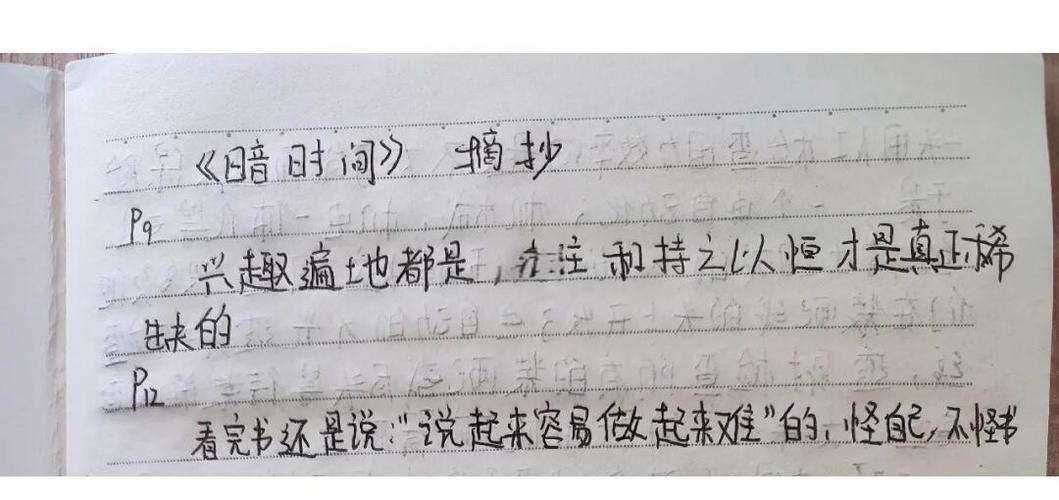 《暗时间》 摘抄
P9
兴趣遍地都是，专注和持之以恒才是真正稀
缺的
P12
看完书还是说："说起来容易做起来难"的，怪自己，不怪书